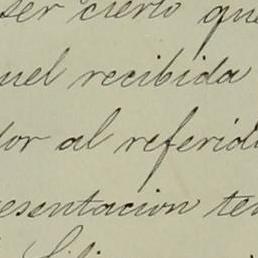 ser cierto que
uel recibida
dor al referid
esentacion te